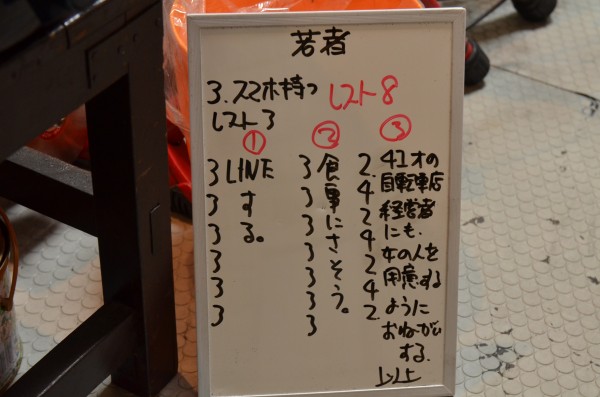 若者
3.スマホ持つ レスト8
レスト3
① ② ③
3 LINE
3 す
3 る。
3
3
3
3 食
3 事
3 に
3 さ
3 そ
3 う。
3
2. 41才の
4 自転車店
2 経営者
4 にも、
2 女の人を
4 用意する
2. ように
おねがい
する.
以上